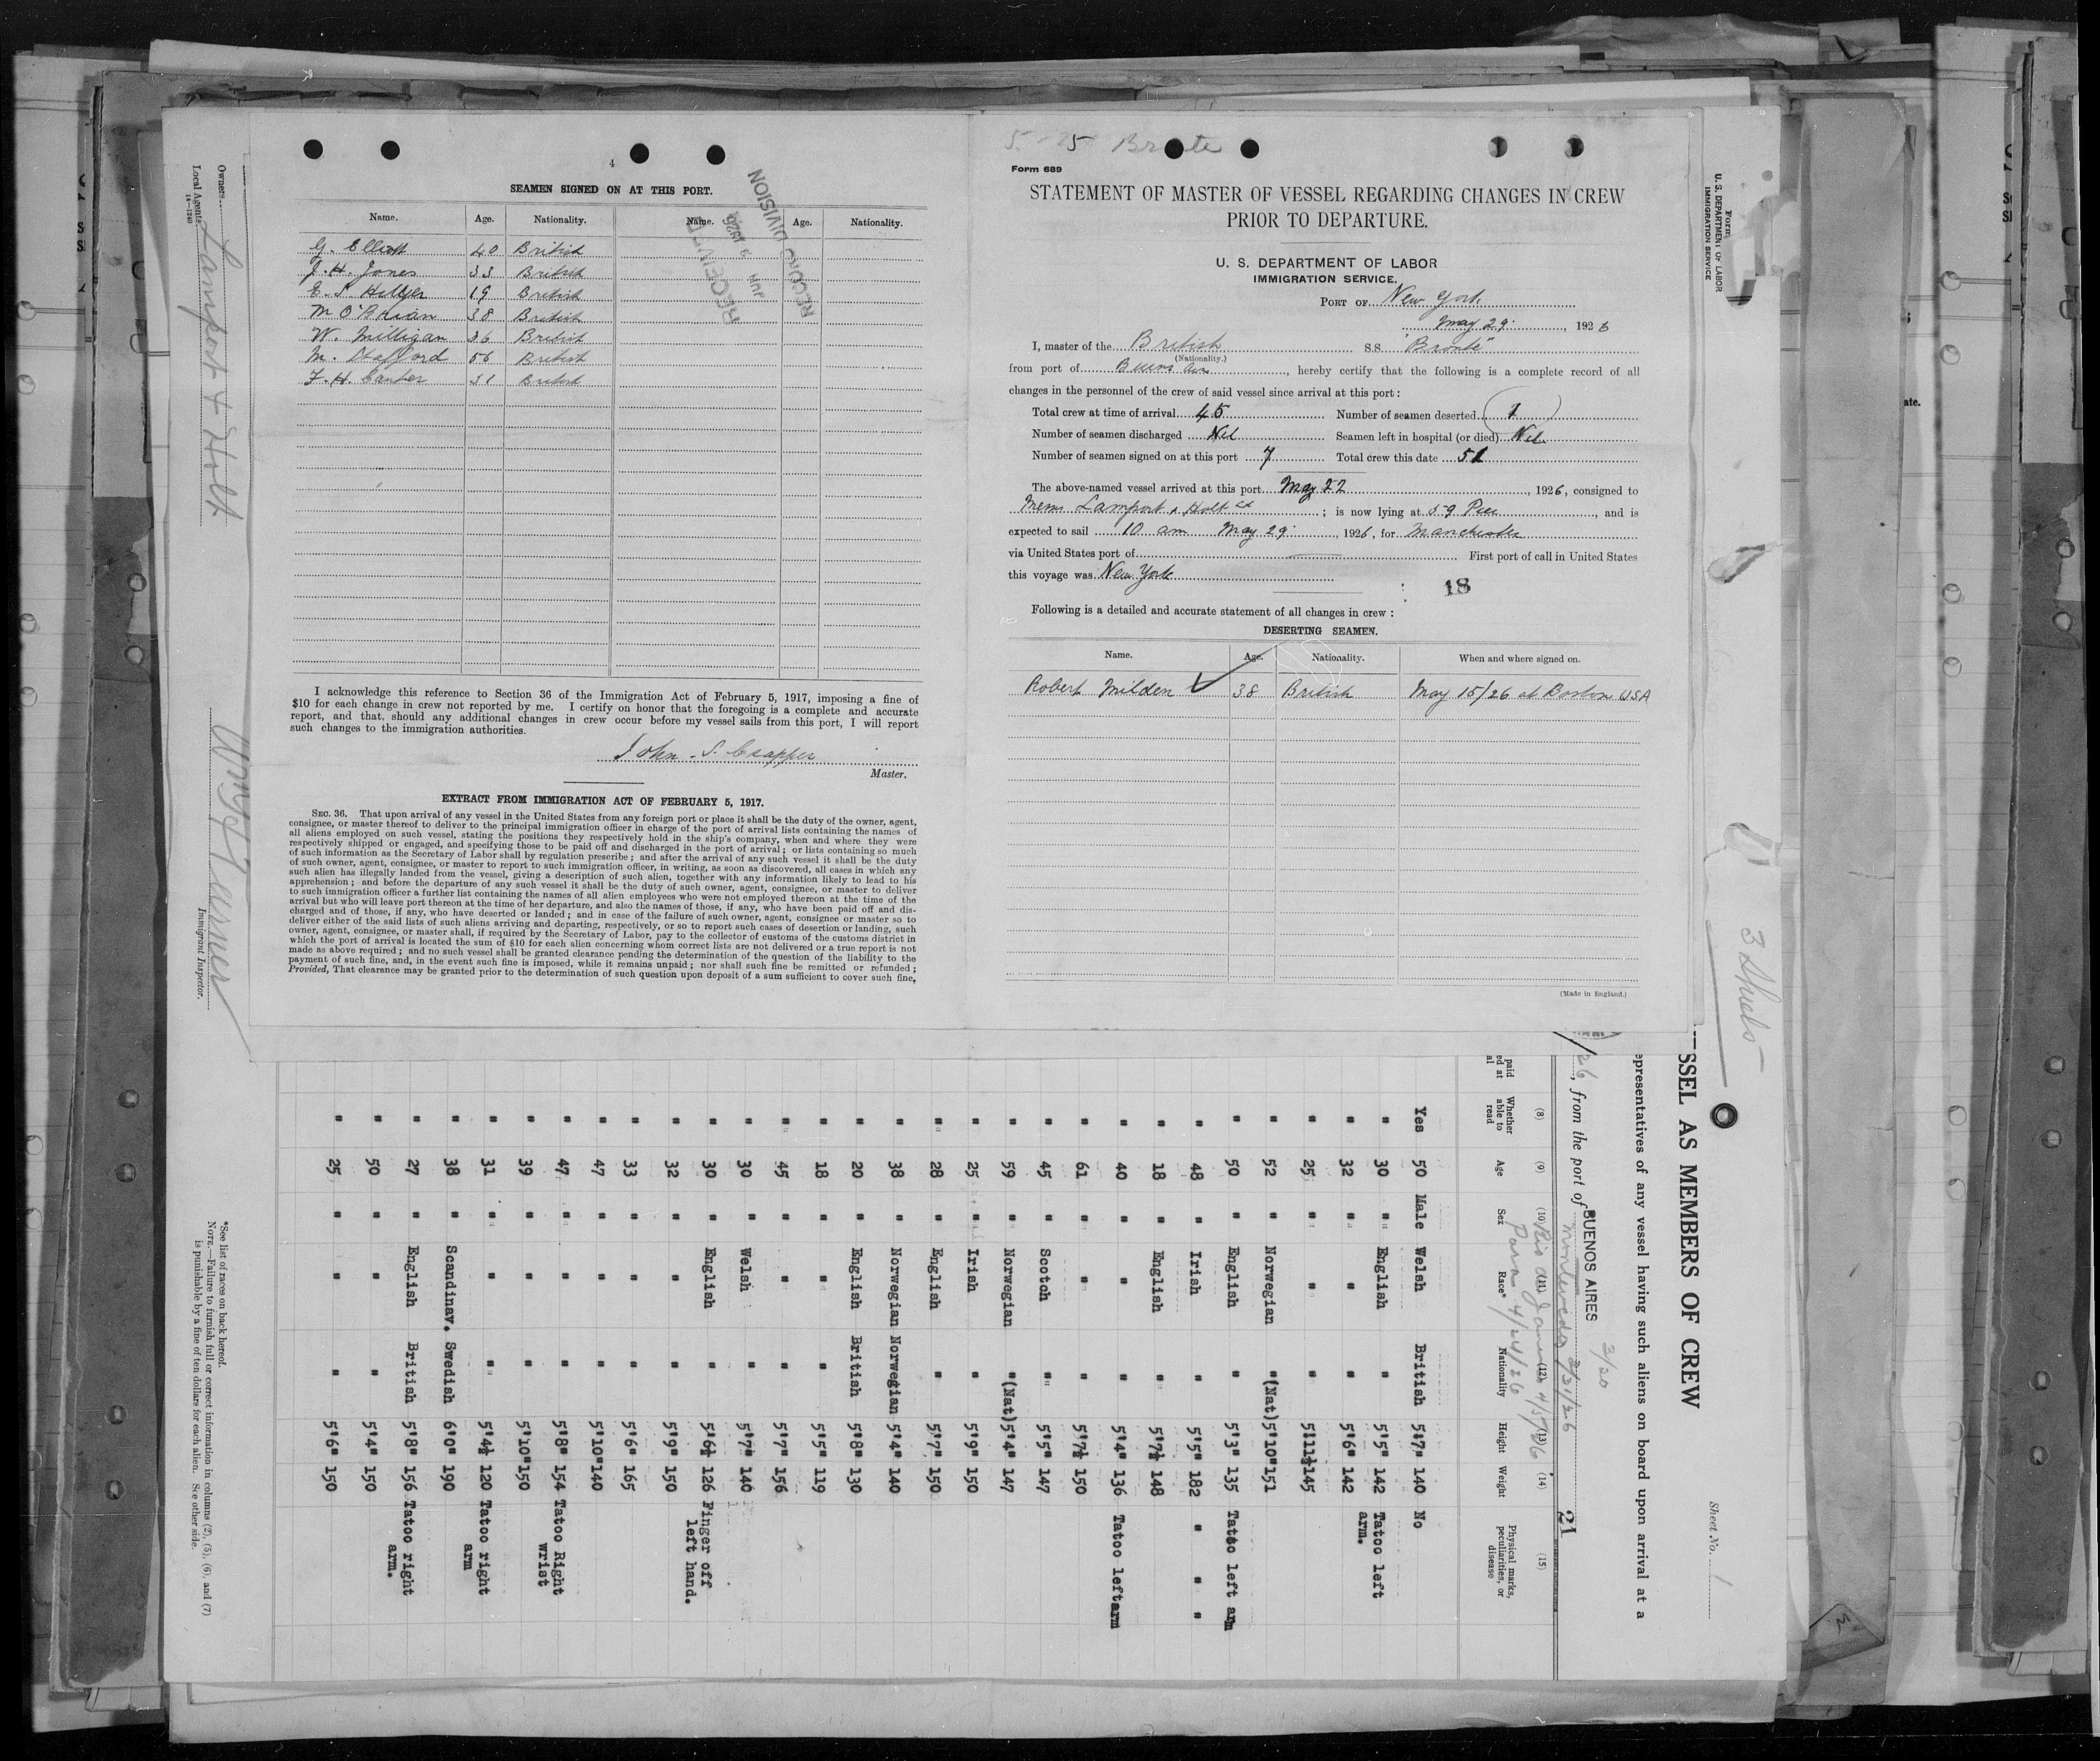 4
SEAMEN SIGNED ON AT THIS PORT.
Name. Age. Nationality. Name. Age. Nationality.
G. Elliott 40 British
J. H. Jones 33 British
E. S. Hillyer 19 British
M O'Brian 38 British
W. Milligan 36 British
M. Stafford 56 British
F. H. 51 British
RECEIVED
JUN 9 1926
RECORD DIVISION
I acknowledge this reference to Section 36 of the Immigration Act of February 5, 1917, imposing a fine of
$10 for each change in crew not reported by me. I certify on honor that the foregoing is a complete and accurate
report, and that, should any additional changes in crew occur before my vessel sails from this port, I will report
such changes to the immigration authorities.
John S. Crapper
Master.
EXTRACT FROM IMMIGRATION ACT OF FEBRUARY 5, 1917.
SEC. 36. That upon arrival of any vessel in the United States from any foreign port or place it shall be the duty of the owner, agent,
consignee, or master thereof to deliver to the principal immigration officer in charge of the port of arrival lists containing the names of
all aliens employed on such vessel, stating the positions they respectively hold in the ship's company, when and where they were
respectively shipped or engaged, and specifying those to be paid off and discharged in the port of arrival; or lists containing so much
of such information as the Secretary of Labor shall by regulation prescribe; and after the arrival of any such vessel it shall be the duty
of such owner, agent, consignee, or master to report to such immigration officer, in writing, as soon as discovered, all cases in which any
such alien has illegally landed from the vessel, giving a description of such alien, together with any information likely to lead to his
apprehension; and before the departure of any such vessel it shall be the duty of such owner, agent, consignee, or master to deliver
to such immigration officer a further list containing the names of all alien employees who were not employed thereon at the time of the
arrival but who will leave port thereon at the time of her departure, and also the names of those, if any, who have been paid off and dis-
charged and of those, if any, who have deserted or landed; and in case of the failure of such owner, agent, consignee or master so to
deliver either of the said lists of such aliens arriving and departing, respectively, or so to report such cases of desertion or landing, such
owner, agent, consignee, or master shall, if required by the Secretary of Labor, pay to the collector of customs of the customs district in
which the port of arrival is located the sum of $10 for each alien concerning whom correct lists are not delivered or a true report is not
made as above required; and no such vessel shall be granted clearance pending the determination of the question of the liability to the
payment of such fine, and, in the event such fine is imposed, while it remains unpaid; nor shall such fine be remitted or refunded;
Provided, That clearance may be granted prior to the determination of such question upon deposit of a sum sufficient to cover such fine.
5-25 Bronte
Form 689
STATEMENT OF MASTER OF VESSEL REGARDING CHANGES IN CREW
PRIOR TO DEPARTURE.
U. S. DEPARTMENT OF LABOR
IMMIGRATION SERVICE.
PORT OF New York
May 29, 1926
I, master of the British S.S. "Bronte"
(Nationality.)
from port of Buenos Aires, hereby certify that the following is a complete record of all
changes in the personnel of the crew of said vessel since arrival at this port:
Total crew at time of arrival 45 Number of seamen deserted (1)
Number of seamen discharged Nil Seamen left in hospital (or died) Nil
Number of seamen signed on at this port 7 Total crew this date 51
The above-named vessel arrived at this port May 22, 1926, consigned to
Messrs Lamport & Holt Ld; is now lying at 59 Pier, and is
expected to sail 10 am May 29, 1926, for Manchester
via United States port of First port of call in United States
this voyage was New York
18
Following is a detailed and accurate statement of all changes in crew:
DESERTING SEAMEN.
Name. Age. Nationality. When and where signed on.
Robert Milden 38 British May 15/26 at Boston USA
(Made in England.)
Owners
Local Agents Lamport & Holt
14-1240
Immigrant Inspector.
Form
U. S. DEPARTMENT OF LABOR
IMMIGRATION SERVICE
3 Sheets
Sheet No. 1
SSEL AS MEMBERS OF CREW
epresentatives of any vessel having such aliens on board upon arrival at a
26, from the port of BUENOS AIRES 3/20
Montevideo 3/31/26
Rio de Janeiro 4/5/26
Para 4/24/26
21
(8) (9) (10) (11) (12) (13) (14) (15)
paid
ed at
al
Whether able to read Age Sex Race* Nationality Height Weight Physical marks, peculiarities, or disease
Yes 50 Male Welsh British 5'7" 140 No
" 30 " English " 5'5" 142 Tatoo left arm.
" 32 " " " 5'6" 142
" 25 " " " 5'11½ 145
" 52 " Norwegian "(Nat) 5'10" 151
" 50 " English " 5'3" 135 Tatoo left arm
" 48 " Irish " 5'5" 182 " " "
" 18 " English " 5'7½ 148
" 40 " " " 5'4" 136 Tatoo leftarm
" 61 " " " 5'7½ 150
" 45 " Scotch " 5'5" 147
" 59 " Norwegian "(Nat) 5'4" 147
" 25 " Irish " 5'9" 150
" 28 " English " 5'7" 150
" 38 " Norwegian Norwegian 5'4" 140
" 20 " English British 5'8" 130
" 18 " " " 5'5" 119
" 45 " " " 5'7" 156
" 30 " Welsh " 5'7" 140
" 30 " English " 5'6½ 126 Finger off left hand.
" 32 " " " 5'9" 150
" 33 " " " 5'6" 165
" 47 " " " 5'10" 140
" 47 " " " 5'8" 154 Tatoo Right wrist
" 39 " " " 5'10" 150
" 31 " " " 5'4½ 120 Tatoo right arm
" 38 " Scandinav. Swedish 6'0" 190
" 27 " English British 5'8" 156 Tatoo right arm.
" 50 " " " 5'4" 150
" 25 " " " 5'6" 150
*See list of races on back hereof.
NOTE.—Failure to furnish full or correct information in columns (2), (5), (6), and (7)
is punishable by a fine of ten dollars for each alien. See other side.